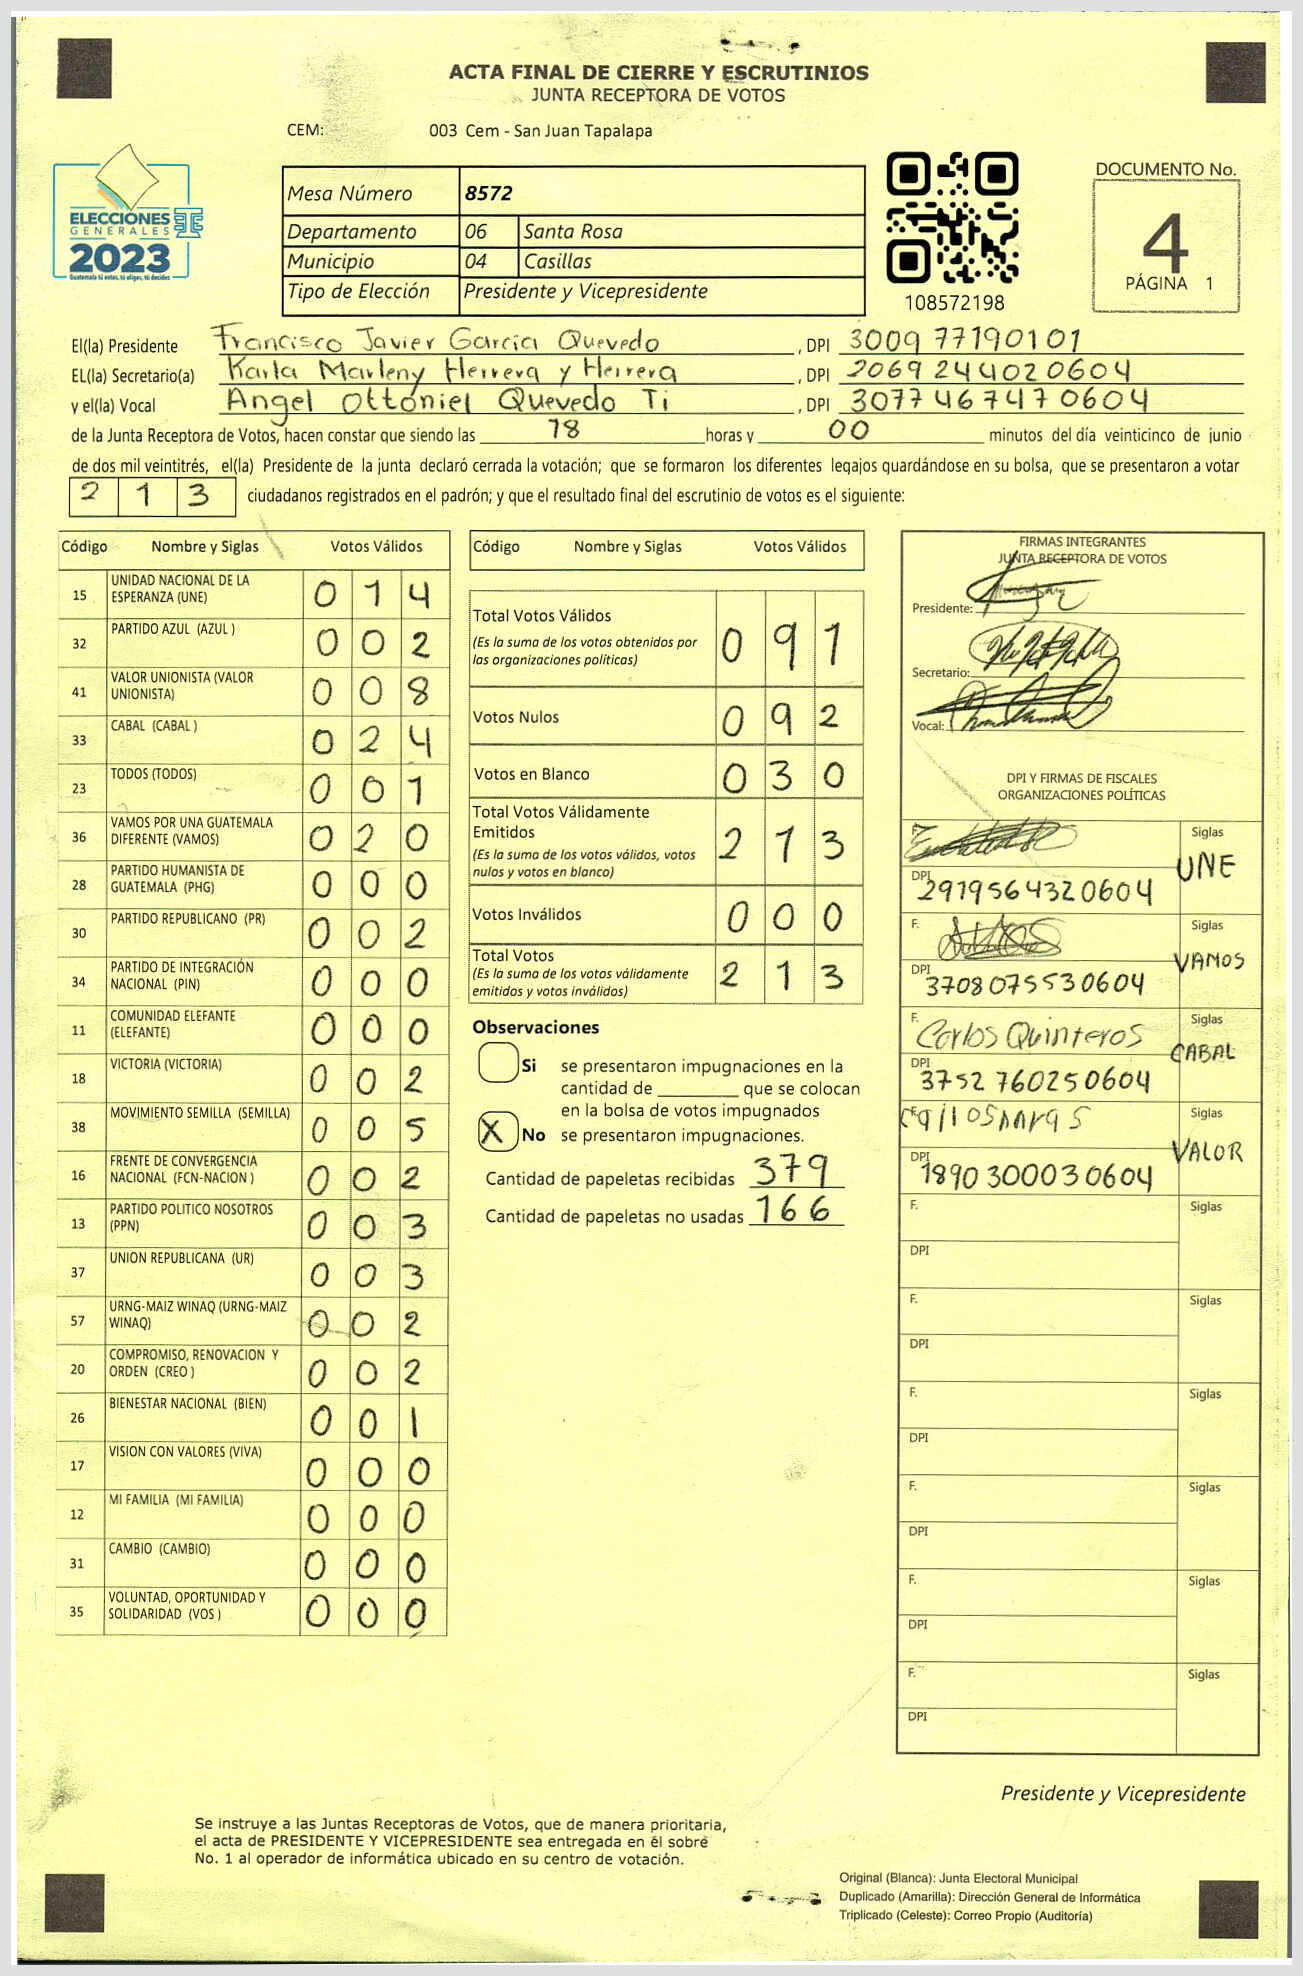 ACTA FINAL DE CIERRE Y ESCRUTINIOS
JUNTA RECEPTORA DE VOTOS
CEM: 003 Cem - San Juan Tapalapa
ELECCIONES
GENERALES
2023
Guatemala tú votas, tú eliges, tú decides
Mesa Número 8572
Departamento 06 Santa Rosa
Municipio 04 Casillas
Tipo de Elección Presidente y Vicepresidente
108572198
DOCUMENTO No.
4
PÁGINA 1
El(la) Presidente Francisco Javier García Quevedo, DPI 3009 77190101
EL(la) Secretario(a) Karla Marleny Herrera y Herrera, DPI 2069 244020604
y el(la) Vocal Angel Ottoniel Quevedo Ti, DPI 3077467470604
de la Junta Receptora de Votos, hacen constar que siendo las 18 horas y 00 minutos del día veinticinco de junio
de dos mil veintitrés, el(la) Presidente de la junta declaró cerrada la votación; que se formaron los diferentes legajos guardándose en su bolsa, que se presentaron a votar
213 ciudadanos registrados en el padrón; y que el resultado final del escrutinio de votos es el siguiente:
Código Nombre y Siglas Votos Válidos
15 UNIDAD NACIONAL DE LA ESPERANZA (UNE) 0 1 4
32 PARTIDO AZUL (AZUL ) 0 0 2
41 VALOR UNIONISTA (VALOR UNIONISTA) 0 0 8
33 CABAL (CABAL ) 0 2 4
23 TODOS (TODOS) 0 0 1
36 VAMOS POR UNA GUATEMALA DIFERENTE (VAMOS) 0 2 0
28 PARTIDO HUMANISTA DE GUATEMALA (PHG) 0 0 0
30 PARTIDO REPUBLICANO (PR) 0 0 2
34 PARTIDO DE INTEGRACIÓN NACIONAL (PIN) 0 0 0
11 COMUNIDAD ELEFANTE (ELEFANTE) 0 0 0
18 VICTORIA (VICTORIA) 0 0 2
38 MOVIMIENTO SEMILLA (SEMILLA) 0 0 5
16 FRENTE DE CONVERGENCIA NACIONAL (FCN-NACION ) 0 0 2
13 PARTIDO POLITICO NOSOTROS (PPN) 0 0 3
37 UNION REPUBLICANA (UR) 0 0 3
57 URNG-MAIZ WINAQ (URNG-MAIZ WINAQ) 0 0 2
20 COMPROMISO, RENOVACION Y ORDEN (CREO ) 0 0 2
26 BIENESTAR NACIONAL (BIEN) 0 0 1
17 VISION CON VALORES (VIVA) 0 0 0
12 MI FAMILIA (MI FAMILIA) 0 0 0
31 CAMBIO (CAMBIO) 0 0 0
35 VOLUNTAD, OPORTUNIDAD Y SOLIDARIDAD (VOS ) 0 0 0
Código Nombre y Siglas Votos Válidos
Total Votos Válidos 0 9 1
(Es la suma de los votos obtenidos por
las organizaciones políticas)
Votos Nulos 0 9 2
Votos en Blanco 0 3 0
Total Votos Válidamente
Emitidos 2 1 3
(Es la suma de los votos válidos, votos
nulos y votos en blanco)
Votos Inválidos 0 0 0
Total Votos 2 1 3
(Es la suma de los votos válidamente
emitidos y votos inválidos)
Observaciones
Si se presentaron impugnaciones en la
cantidad de ________ que se colocan
en la bolsa de votos impugnados
X No se presentaron impugnaciones.
Cantidad de papeletas recibidas 379
Cantidad de papeletas no usadas 166
FIRMAS INTEGRANTES
JUNTA RECEPTORA DE VOTOS
Presidente:
Secretario:
Vocal:
DPI Y FIRMAS DE FISCALES
ORGANIZACIONES POLÍTICAS
F. Siglas UNE
DPI 2919564320604
F. Siglas VAMOS
DPI 3708075530604
F. Carlos Quinteros Siglas CABAL
DPI 3752 760250604
F. Siglas VALOR
DPI 1890300030604
F. Siglas
DPI
F. Siglas
DPI
F. Siglas
DPI
F. Siglas
DPI
F. Siglas
DPI
F. Siglas
DPI
Presidente y Vicepresidente
Se instruye a las Juntas Receptoras de Votos, que de manera prioritaria,
el acta de PRESIDENTE Y VICEPRESIDENTE sea entregada en él sobré
No. 1 al operador de informática ubicado en su centro de votación.
Original (Blanca): Junta Electoral Municipal
Duplicado (Amarilla): Dirección General de Informática
Triplicado (Celeste): Correo Propio (Auditoría)